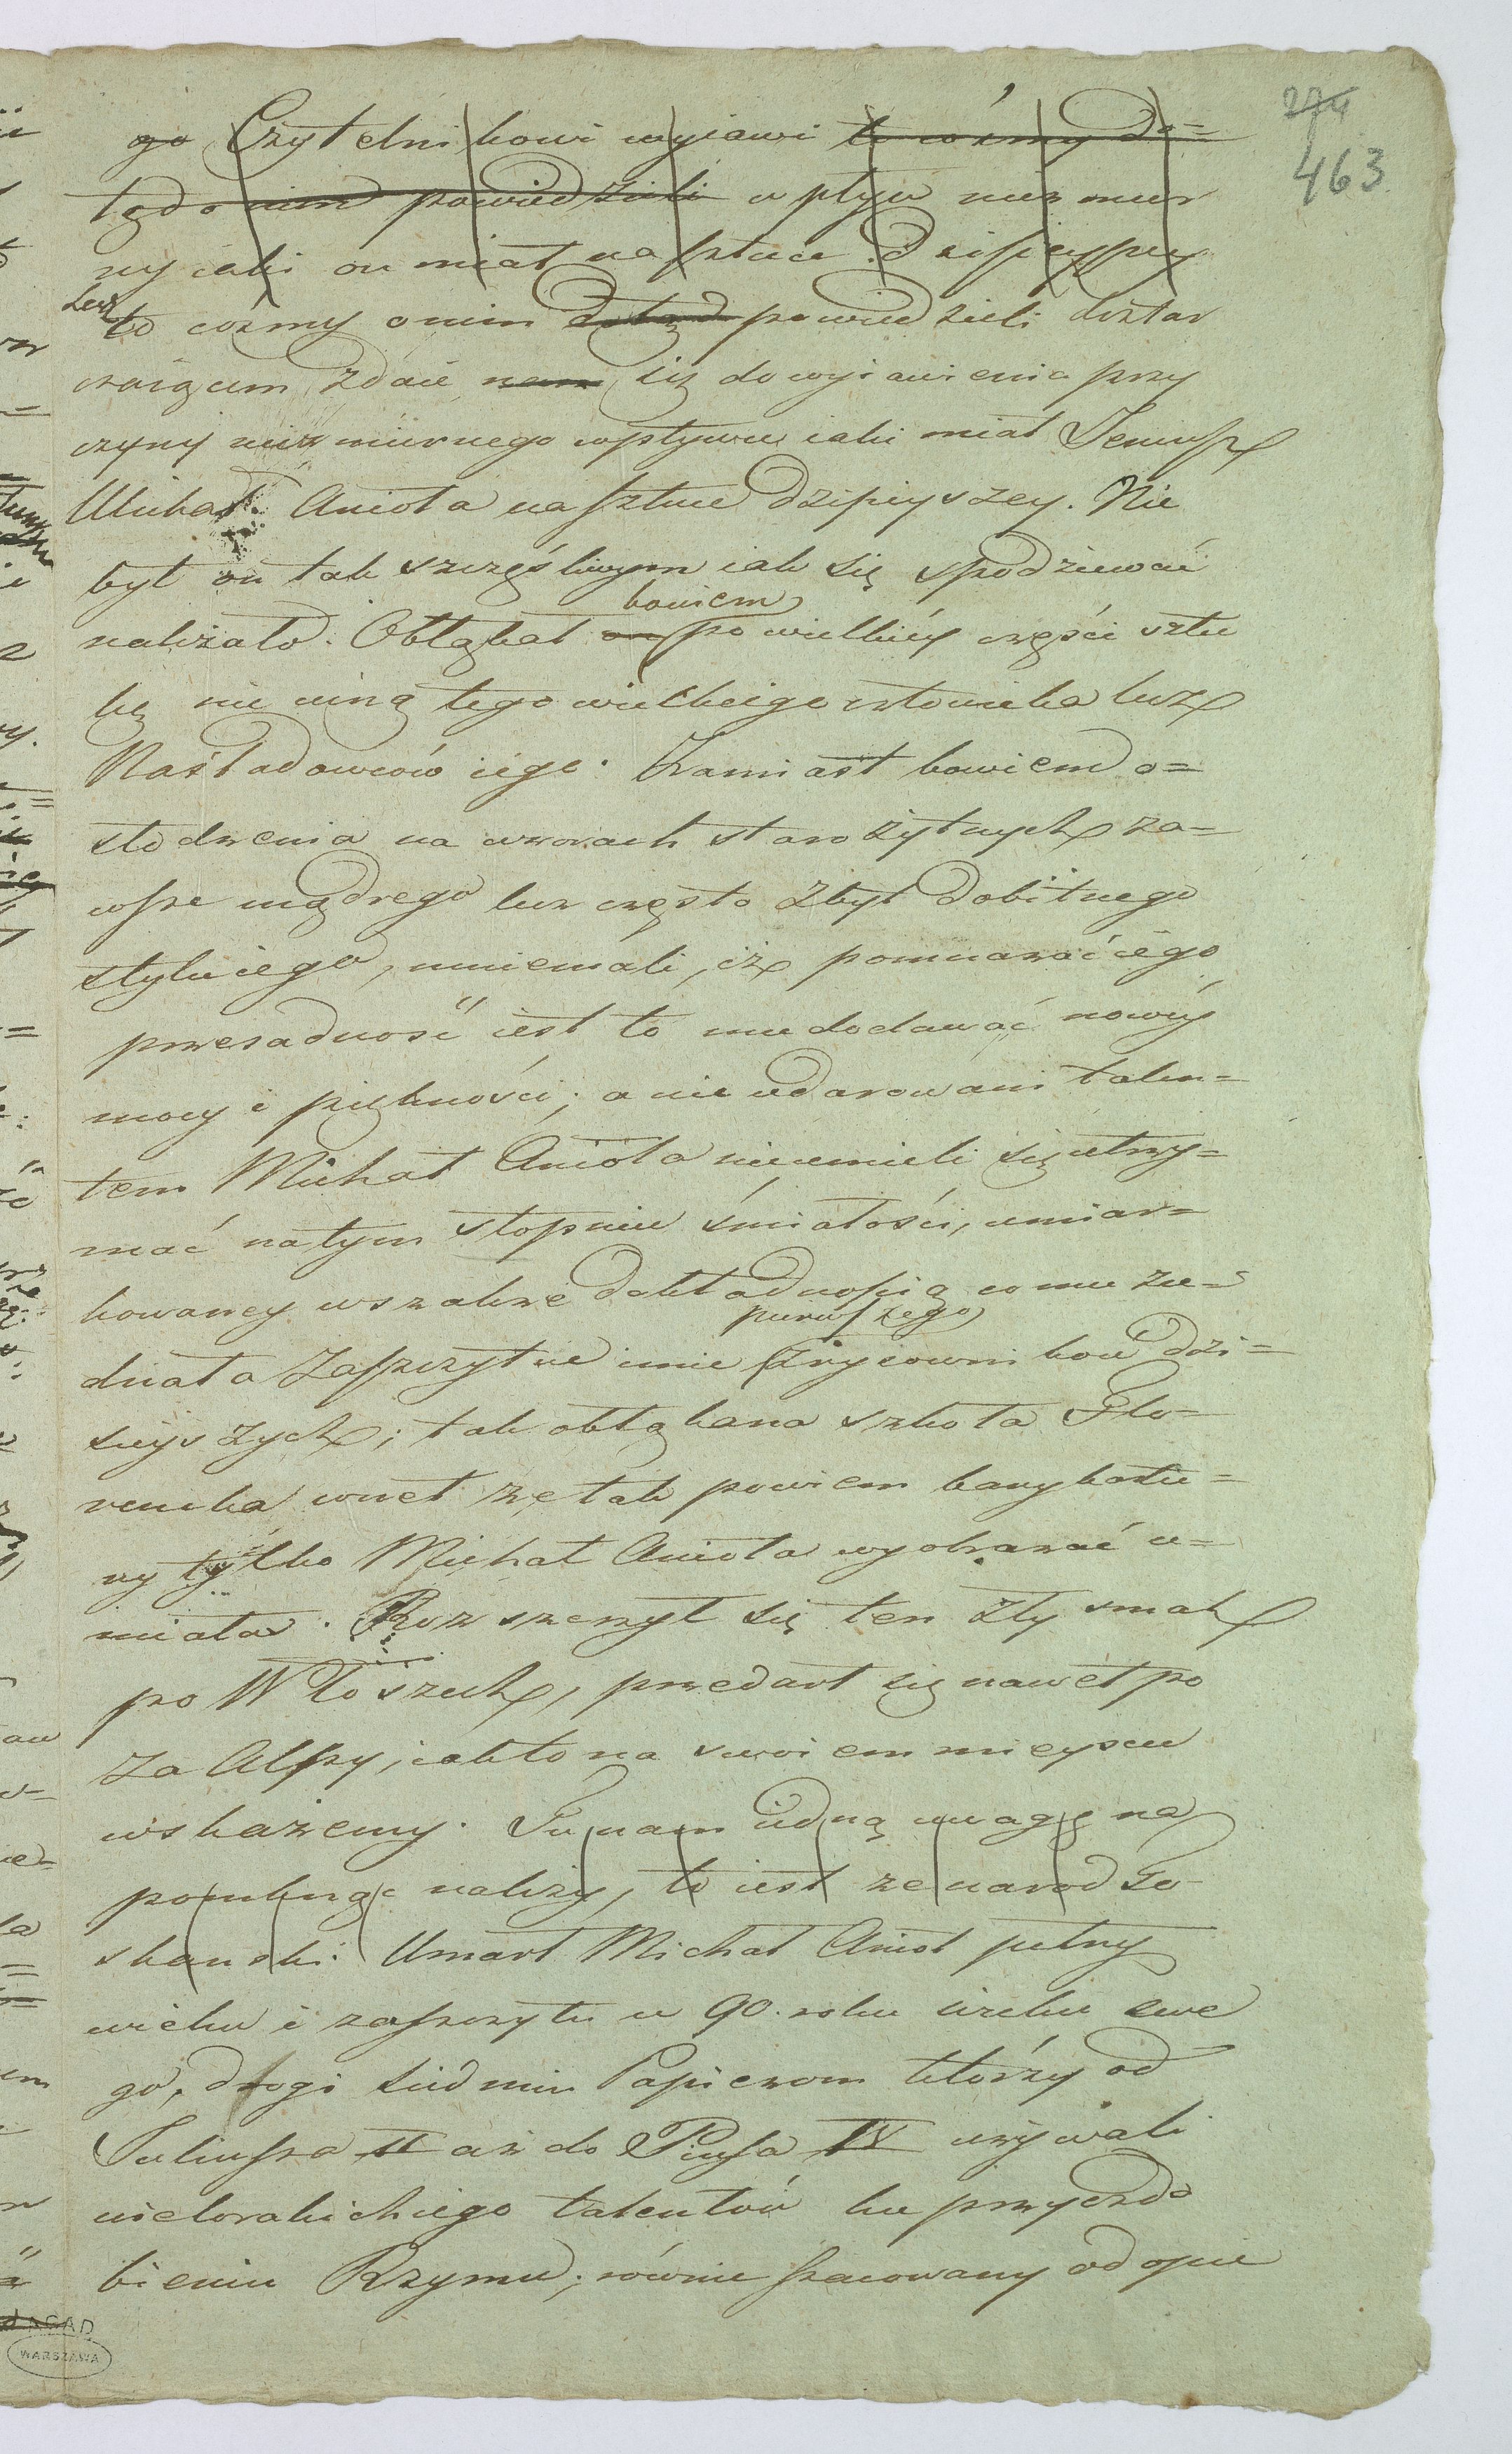 274
463
go Czytelnikowi wyiawi to cośmy do=
tąd o nim powiedzieli wpływ niezmier
ny iaki on miał na sztuce dzisieyszey
Lecz to cośmy o nim dotąd powiedzieli dostar
czaiącem zdaie nam się do wyiawienia przy
czyny niezmiernego wpływu iaki miał Jeniusz
Michał Anioła na sztuce dzisieyszey. Nie
był on tak szczęśliwym iak się spodziewać
należało. Obłąkał on bowiem po wielkiéy części sztu
kę nie winą tego wielkiego człowieka lecz
Naśladowców iego. Zamiast bowiem o=
słodzenia na wzorach starożytnych za=
wsze mądrego lecz często zbyt dobitnego
stylu iego, mniemali, iż pomnażać iego
przesadność iest to mu dodawać nowéy
mocy i piękności; a nie udarowani talen=
tem Michał Anioła nieumieli się utrzy=
mać na tym stopniu śmiałości, umiar=
kowaney wszakże dokładnością co mu zie=
dnała zaszczytne imie pierwszego Rycownikow dzi=
sieyszych; tak obłąkana szkoła Flo=
rencka wnet że tak powiem karykatu=
ry tylko Michał Anioła wyobrażać u=
miała. Rozszerzył się ten zły smak
po Włoszech, przedarł się nawet po
za Alpy, iak to na swoiem mieyscu
wskażemy. Tu nam iedną uwagę na
pomknąć należy, to iest że narod To=
skański. Umarł Michał Anioł pełny
wieku i zaszczytu w 90. roku wieku swe
go, drogi siedmiu Papieżom którzy od
Juliusza II aż do Piusa IV używali
wielorakichiego talentów ku przyozdo
bieniu Rzymu; równie szacowany od opie
AGAD
WARSZAWA